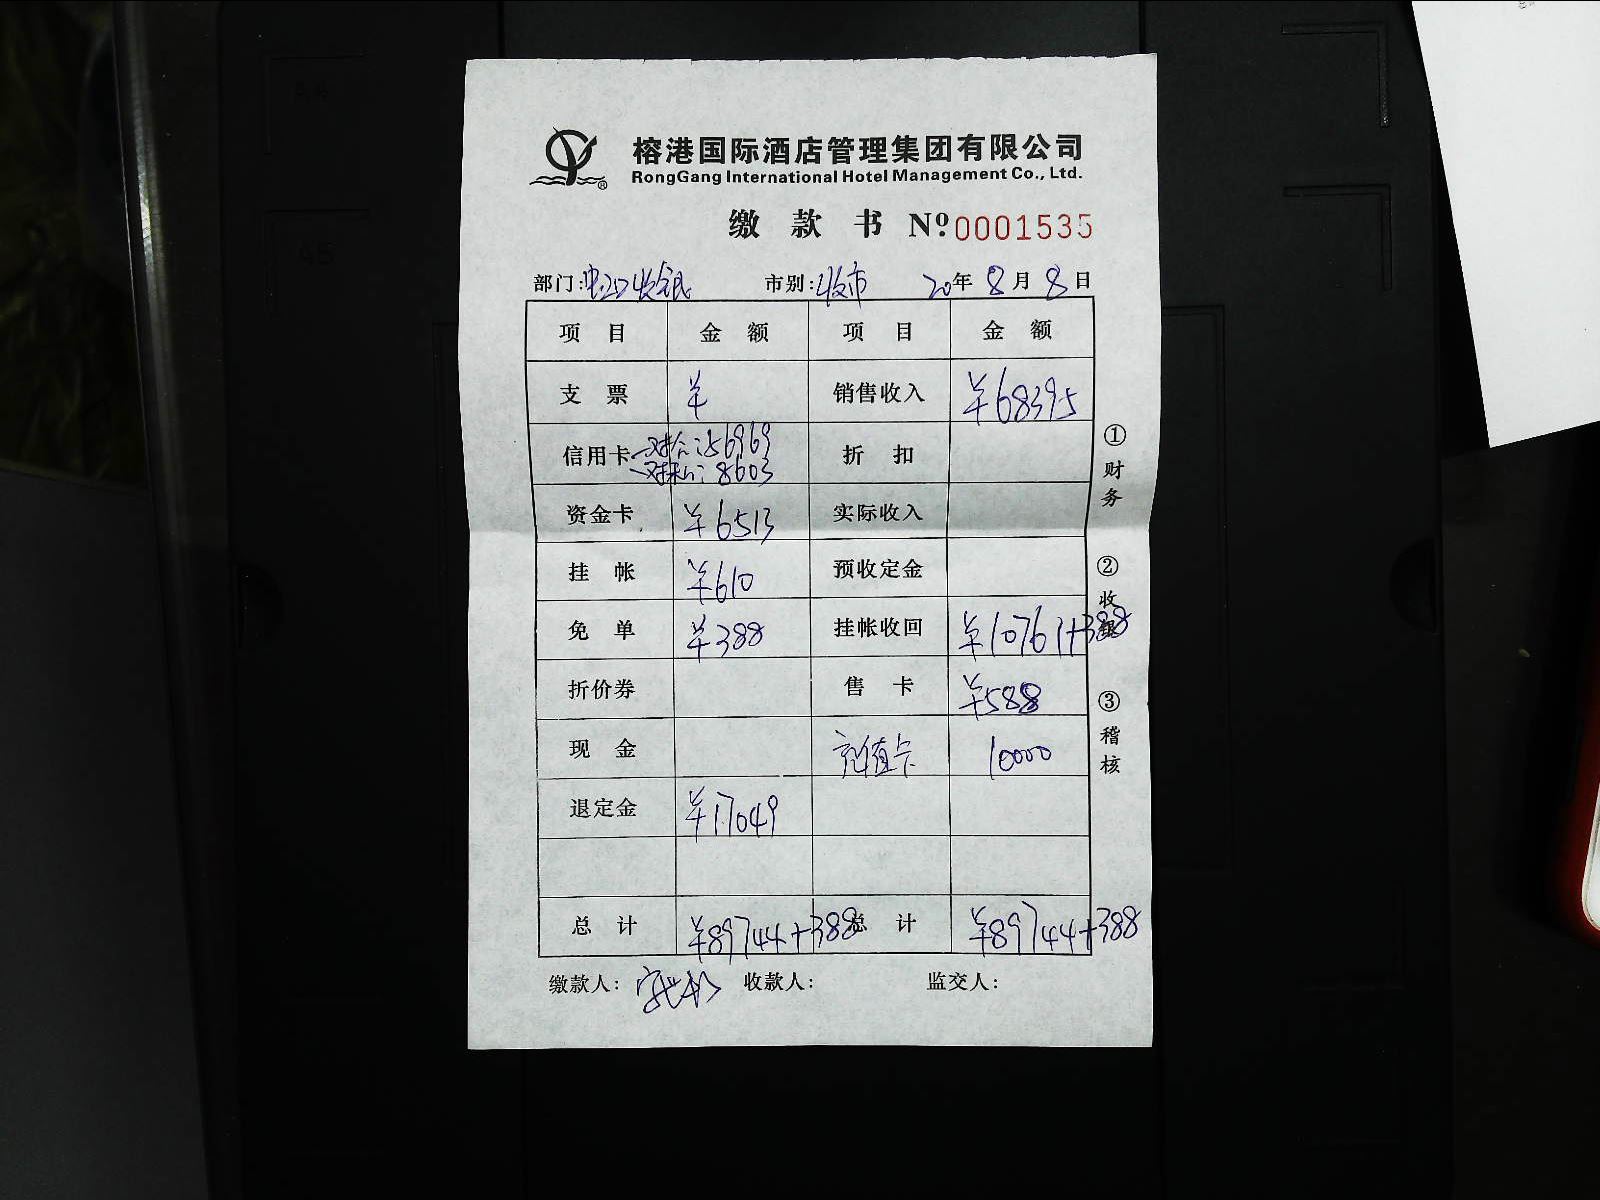 榕港国际酒店管理集团有限公司
RongGang International Hotel Management Co., Ltd.
缴款书 No 0001535
部门: 收银 市别: 收市 20年8月8日
项目 金额 项目 金额
支票 ¥ 销售收入 ¥68395
信用卡 56969 折扣
8603
资金卡 ¥6513 实际收入
挂帐 ¥610 预收定金
免单 ¥388 挂帐收回 ¥10761+388
折价券 售卡 ¥588
现金 充值卡 10000
退定金 ¥17049
总计 ¥89744+388 总计 ¥89744+388
缴款人: 收款人: 监交人:
①财务 ②收银 ③稽核